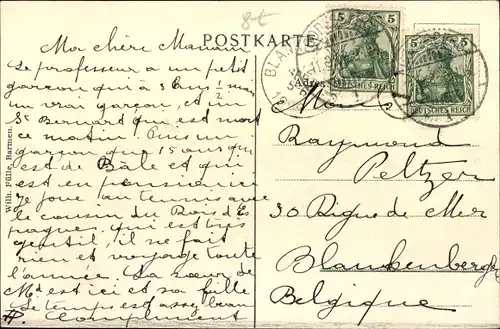 8t
POSTKARTE
BLANKENBERGHE
5 5
5
DEUTSCHES REICH
DEUTSCHES REICH
Ma chère Maman
Le professeur a un petit
garçon qui a 3 ans ½ mais
un vrai garçon, A un
St Bernard qui est mort
ce matin Puis un
garçon que 15 ans qui
est de Bâle et qui
est en pensionnaire
Je joue au tennis avec
le cousin du Roi d'Es
pagne, qui est très
gentil, il ne fait
rien et voyage toute
l'année. Sa sœur de
Md est ici et sa fille
Le temps est assez beau
Raymond
Peltzer
30 Digue de Mer
Blankenberghe
Belgique
Wilh. Fülle, Barmen.